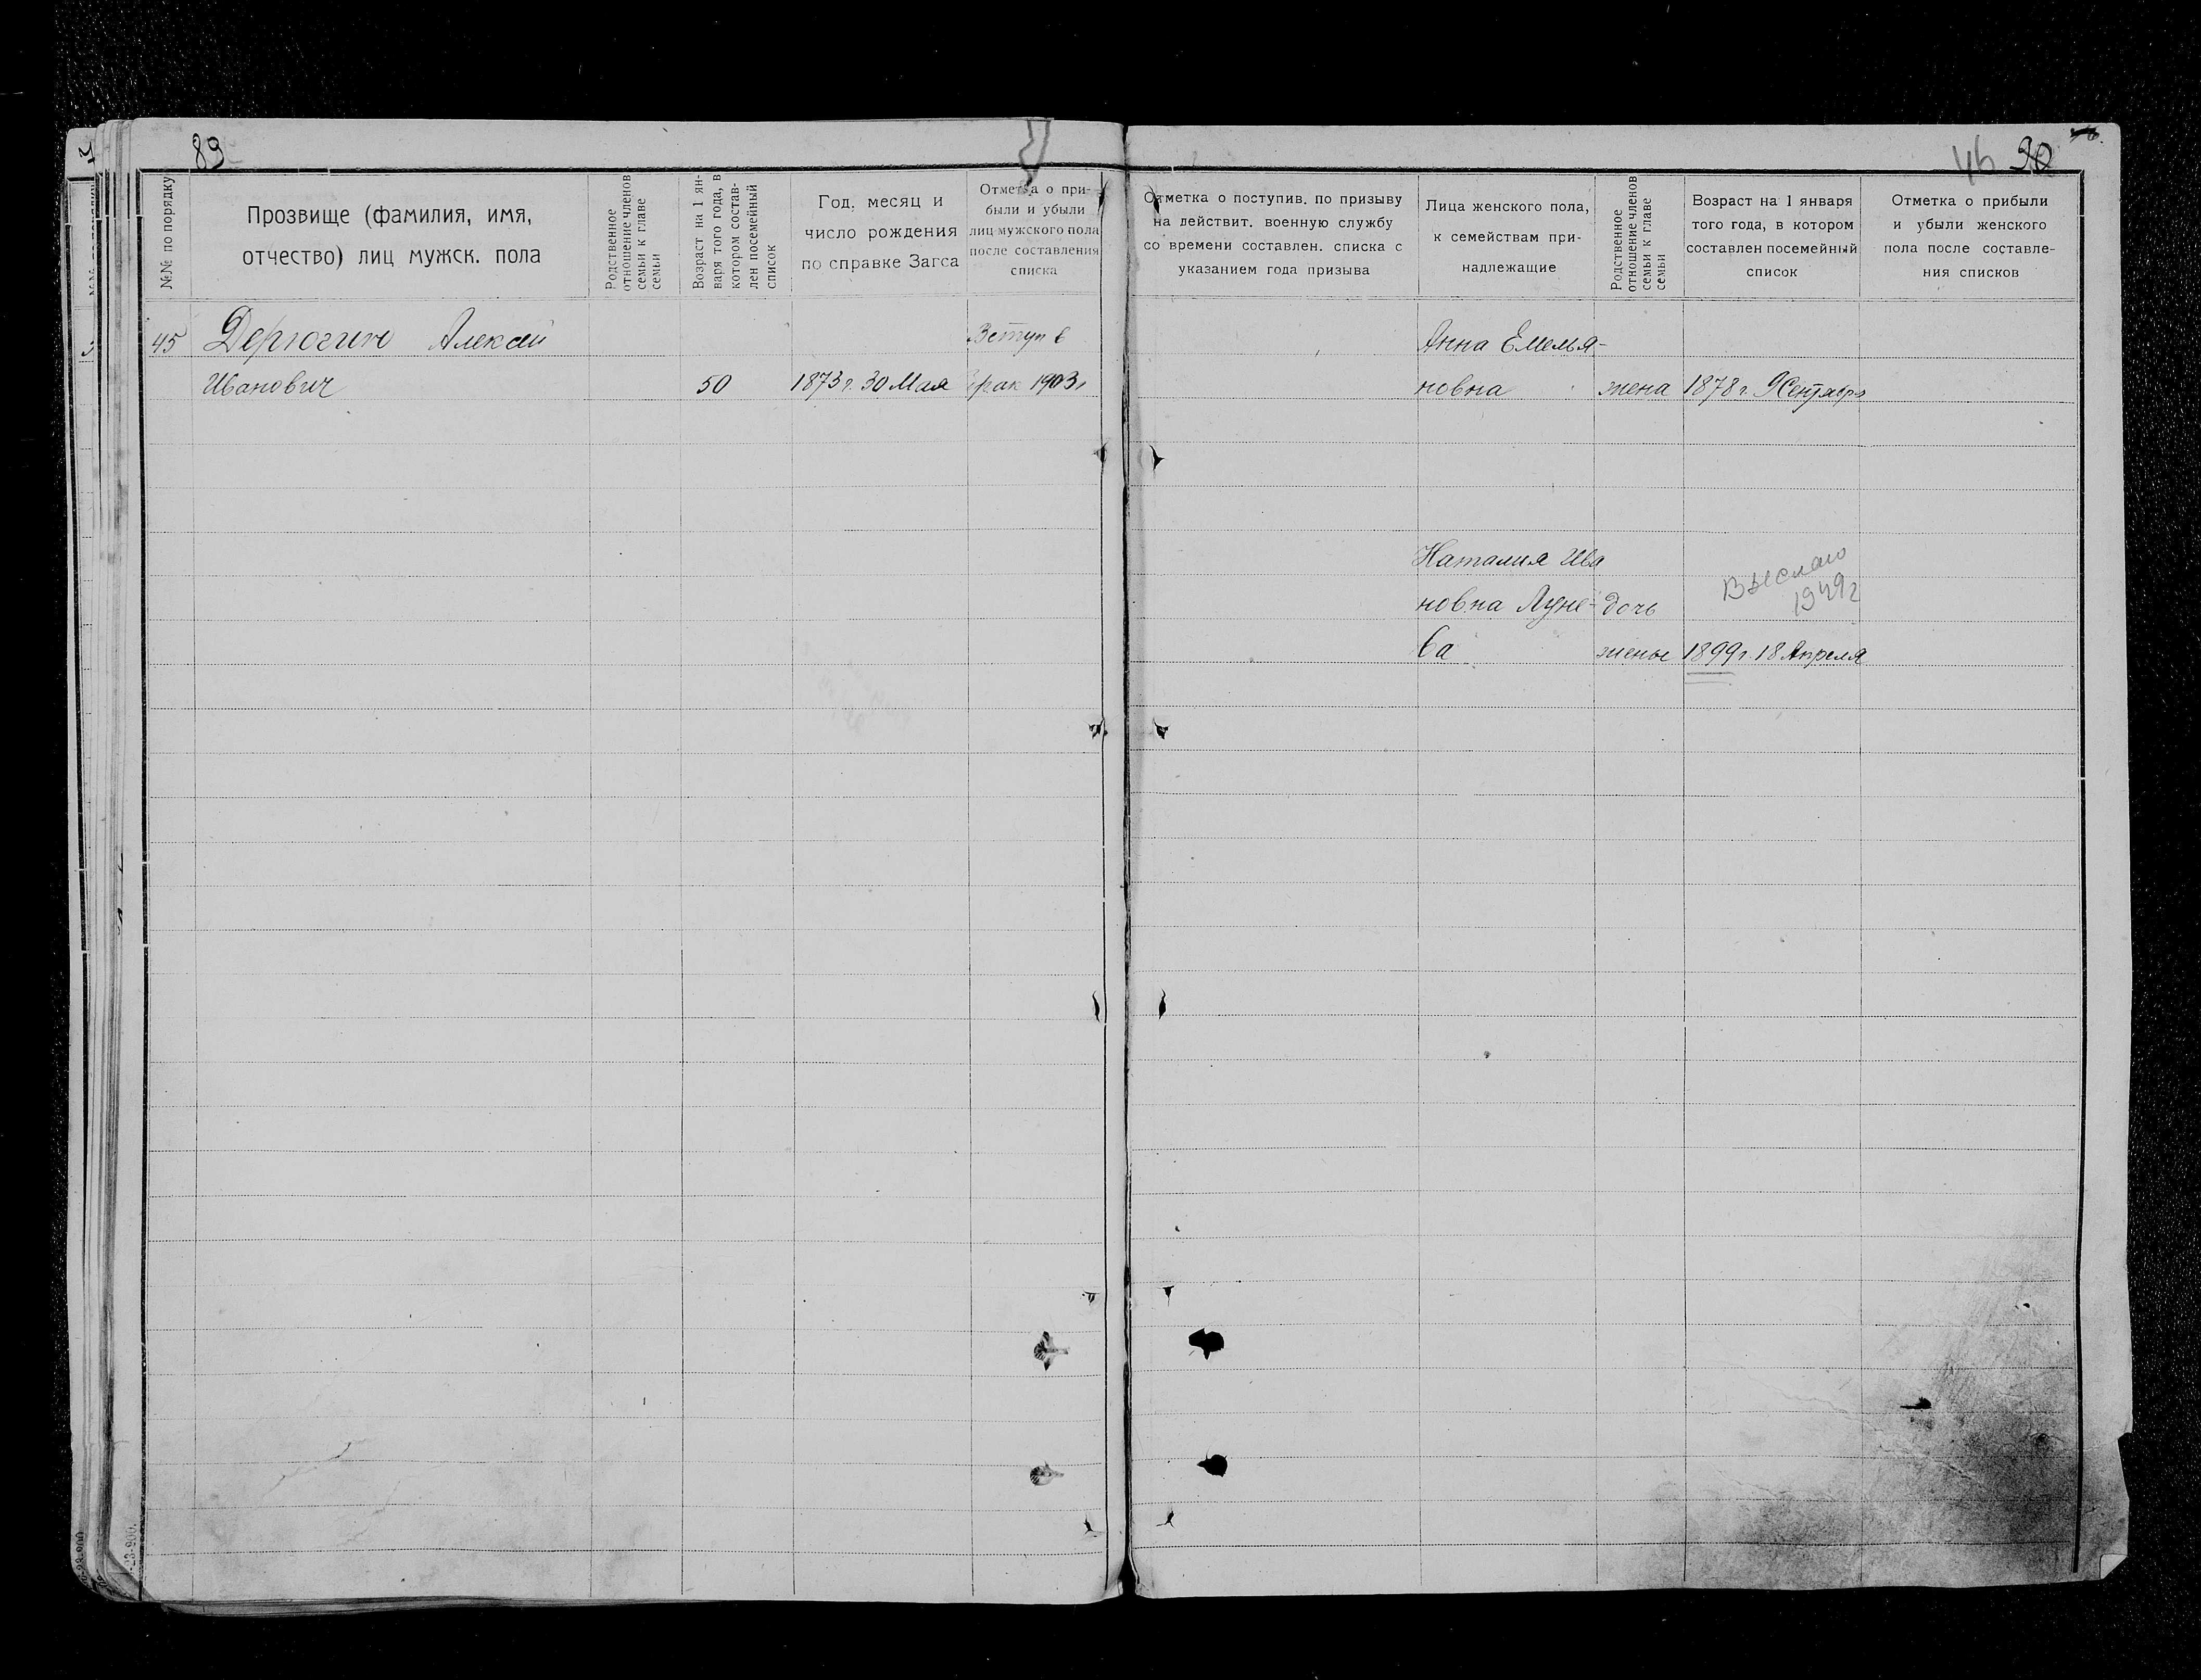 89
№№ по порядку
Прозвище (фамилия, имя,
отчество) лиц мужск. пола
Родственное
отношение членов
семьи к главе
семьи
Возраст на 1 ян-
варя того года, в
котором состав-
лен посемейный
список
Год, месяц и
число рождения
по справке Загса
Отметка о при-
были и убыли
лиц мужского пола
после составления
списка
45
Алексей
Вступ в
Иванович
50
1873 г. 30 Мая
брак 1903 г
46 90
Отметка о поступив. по призыву
на действит. военную службу
со времени составлен. списка с
указанием года призыва
Лица женского пола,
к семействам при-
надлежащие
Родственное
отношение членов
семьи к главе
семьи
Возраст на 1 января
того года, в котором
составлен посемейный
список
Отметка о прибыли
и убыли женского
пола после составле-
ния списков
Анна Емелья-
новна
жена
1878 г. 9 Сентября
Наталия Ива
новна Луне-
дочь
ва
жены
1899 г. 18 Апреля
1949 г